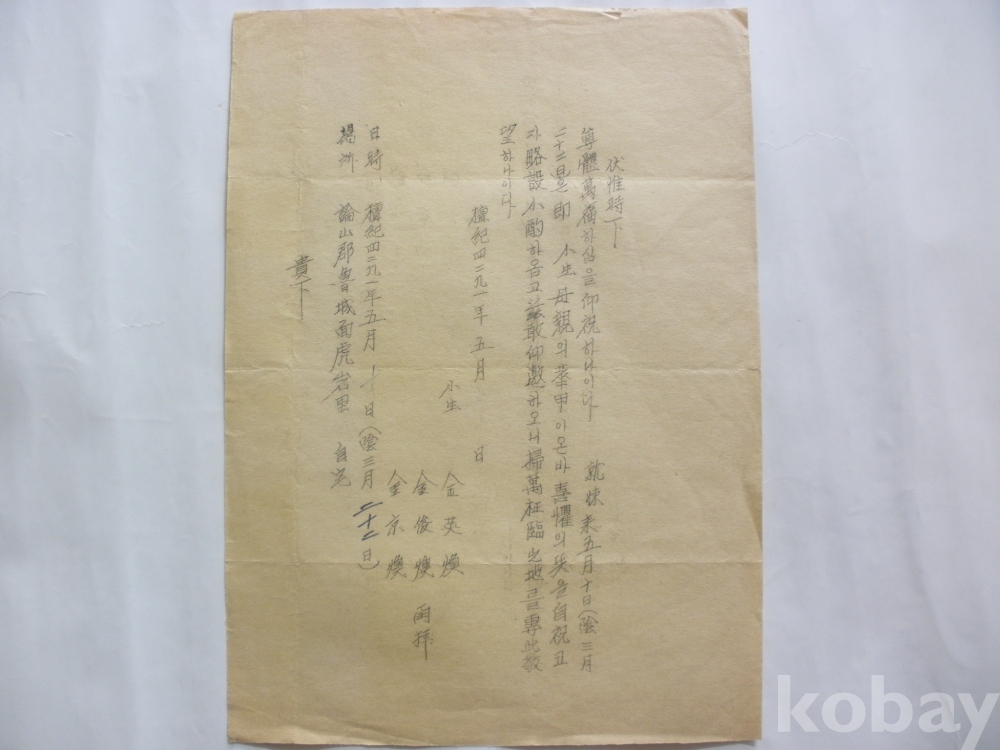 伏惟時下
尊體萬康하심을 仰祝하나이다 就悚 来五月十日(陰三月
二十二日)은 即 小生母親의 華甲이온바 喜懼의 뜻을 自祝코
자 略設小酌하옵고 玆敢仰邀하오니 掃萬枉臨之地를 專此敬
望하나이다
檀紀四二九一年 五月 日
小生 金英煥
金俊煥 再拜
金京煥
日時 檀紀四二九一年五月 十日(陰三月 二十二日)
場所 論山郡魯城面虎岩里 自宅
貴下
kobay